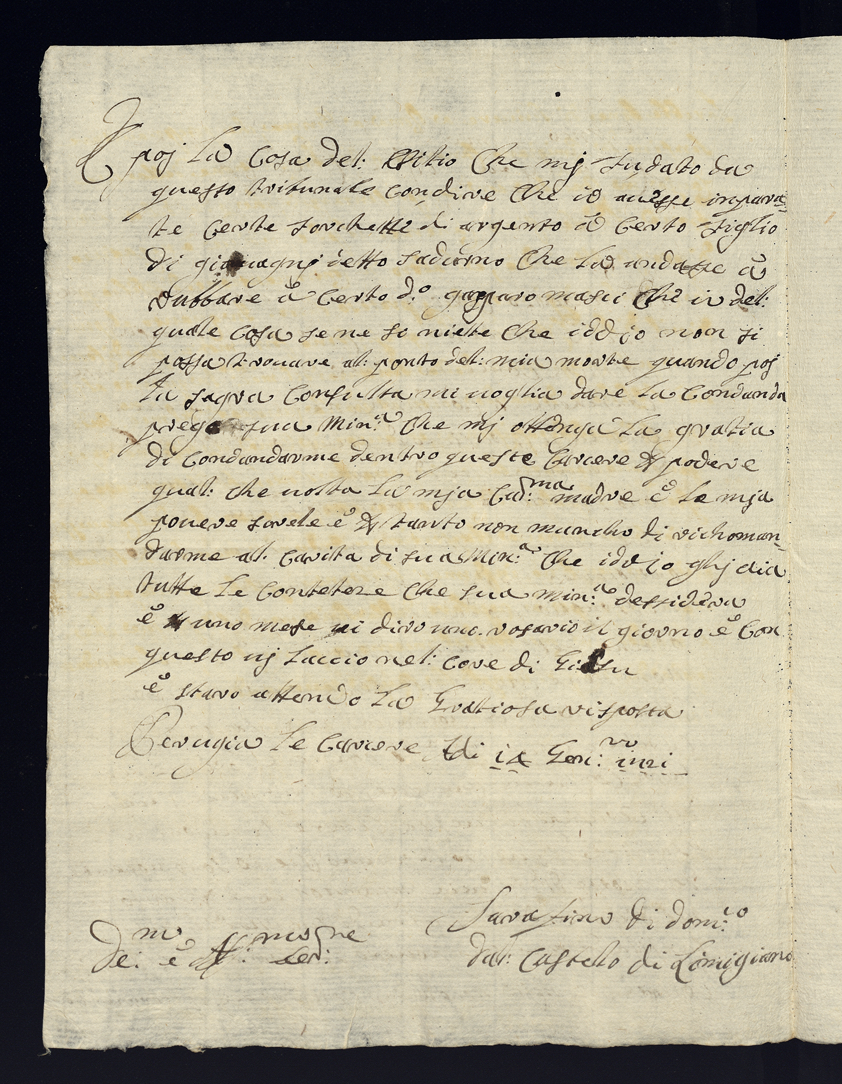 E poj La Cosa del: Vitio Che mj fu dato da
questo tribunale Condire Che io auesse inpara=
te Certe forchette di argento à Certo figlio
di detto Sadurno Che La andasse à
Rubbare à Certo d.º gasparo masci Che io del:
quale Cosa se ne so niette Che iddio non si
possa trouare al: ponto del: mia morte quando poj
La sagra Consulta mi uoglia dare La Condanda
prego sua Min.za Che mj ottenga La gratia
di Condandarme dentro queste Carcere \& podere
qual: che uolta La mja Car:ma madre è Le mja
pouere sorele è \& tanto non mancho di richoman=
darme al: Carita di sua Min:za Che iddio ghj dia
tutte Le Conteteze Che sua Min:za dessidera
è \& uno mese ui diro uno rosario il giorno è Con
questo uj Laccio nel: Core di Giesu
è staro attendo La Gratiosa risposta
Perugia Le Carcere Adi Gen:ro
Sarafino di dom:co
dal: Castello di Limigiano
De: mo è Aff:mo Ser:re